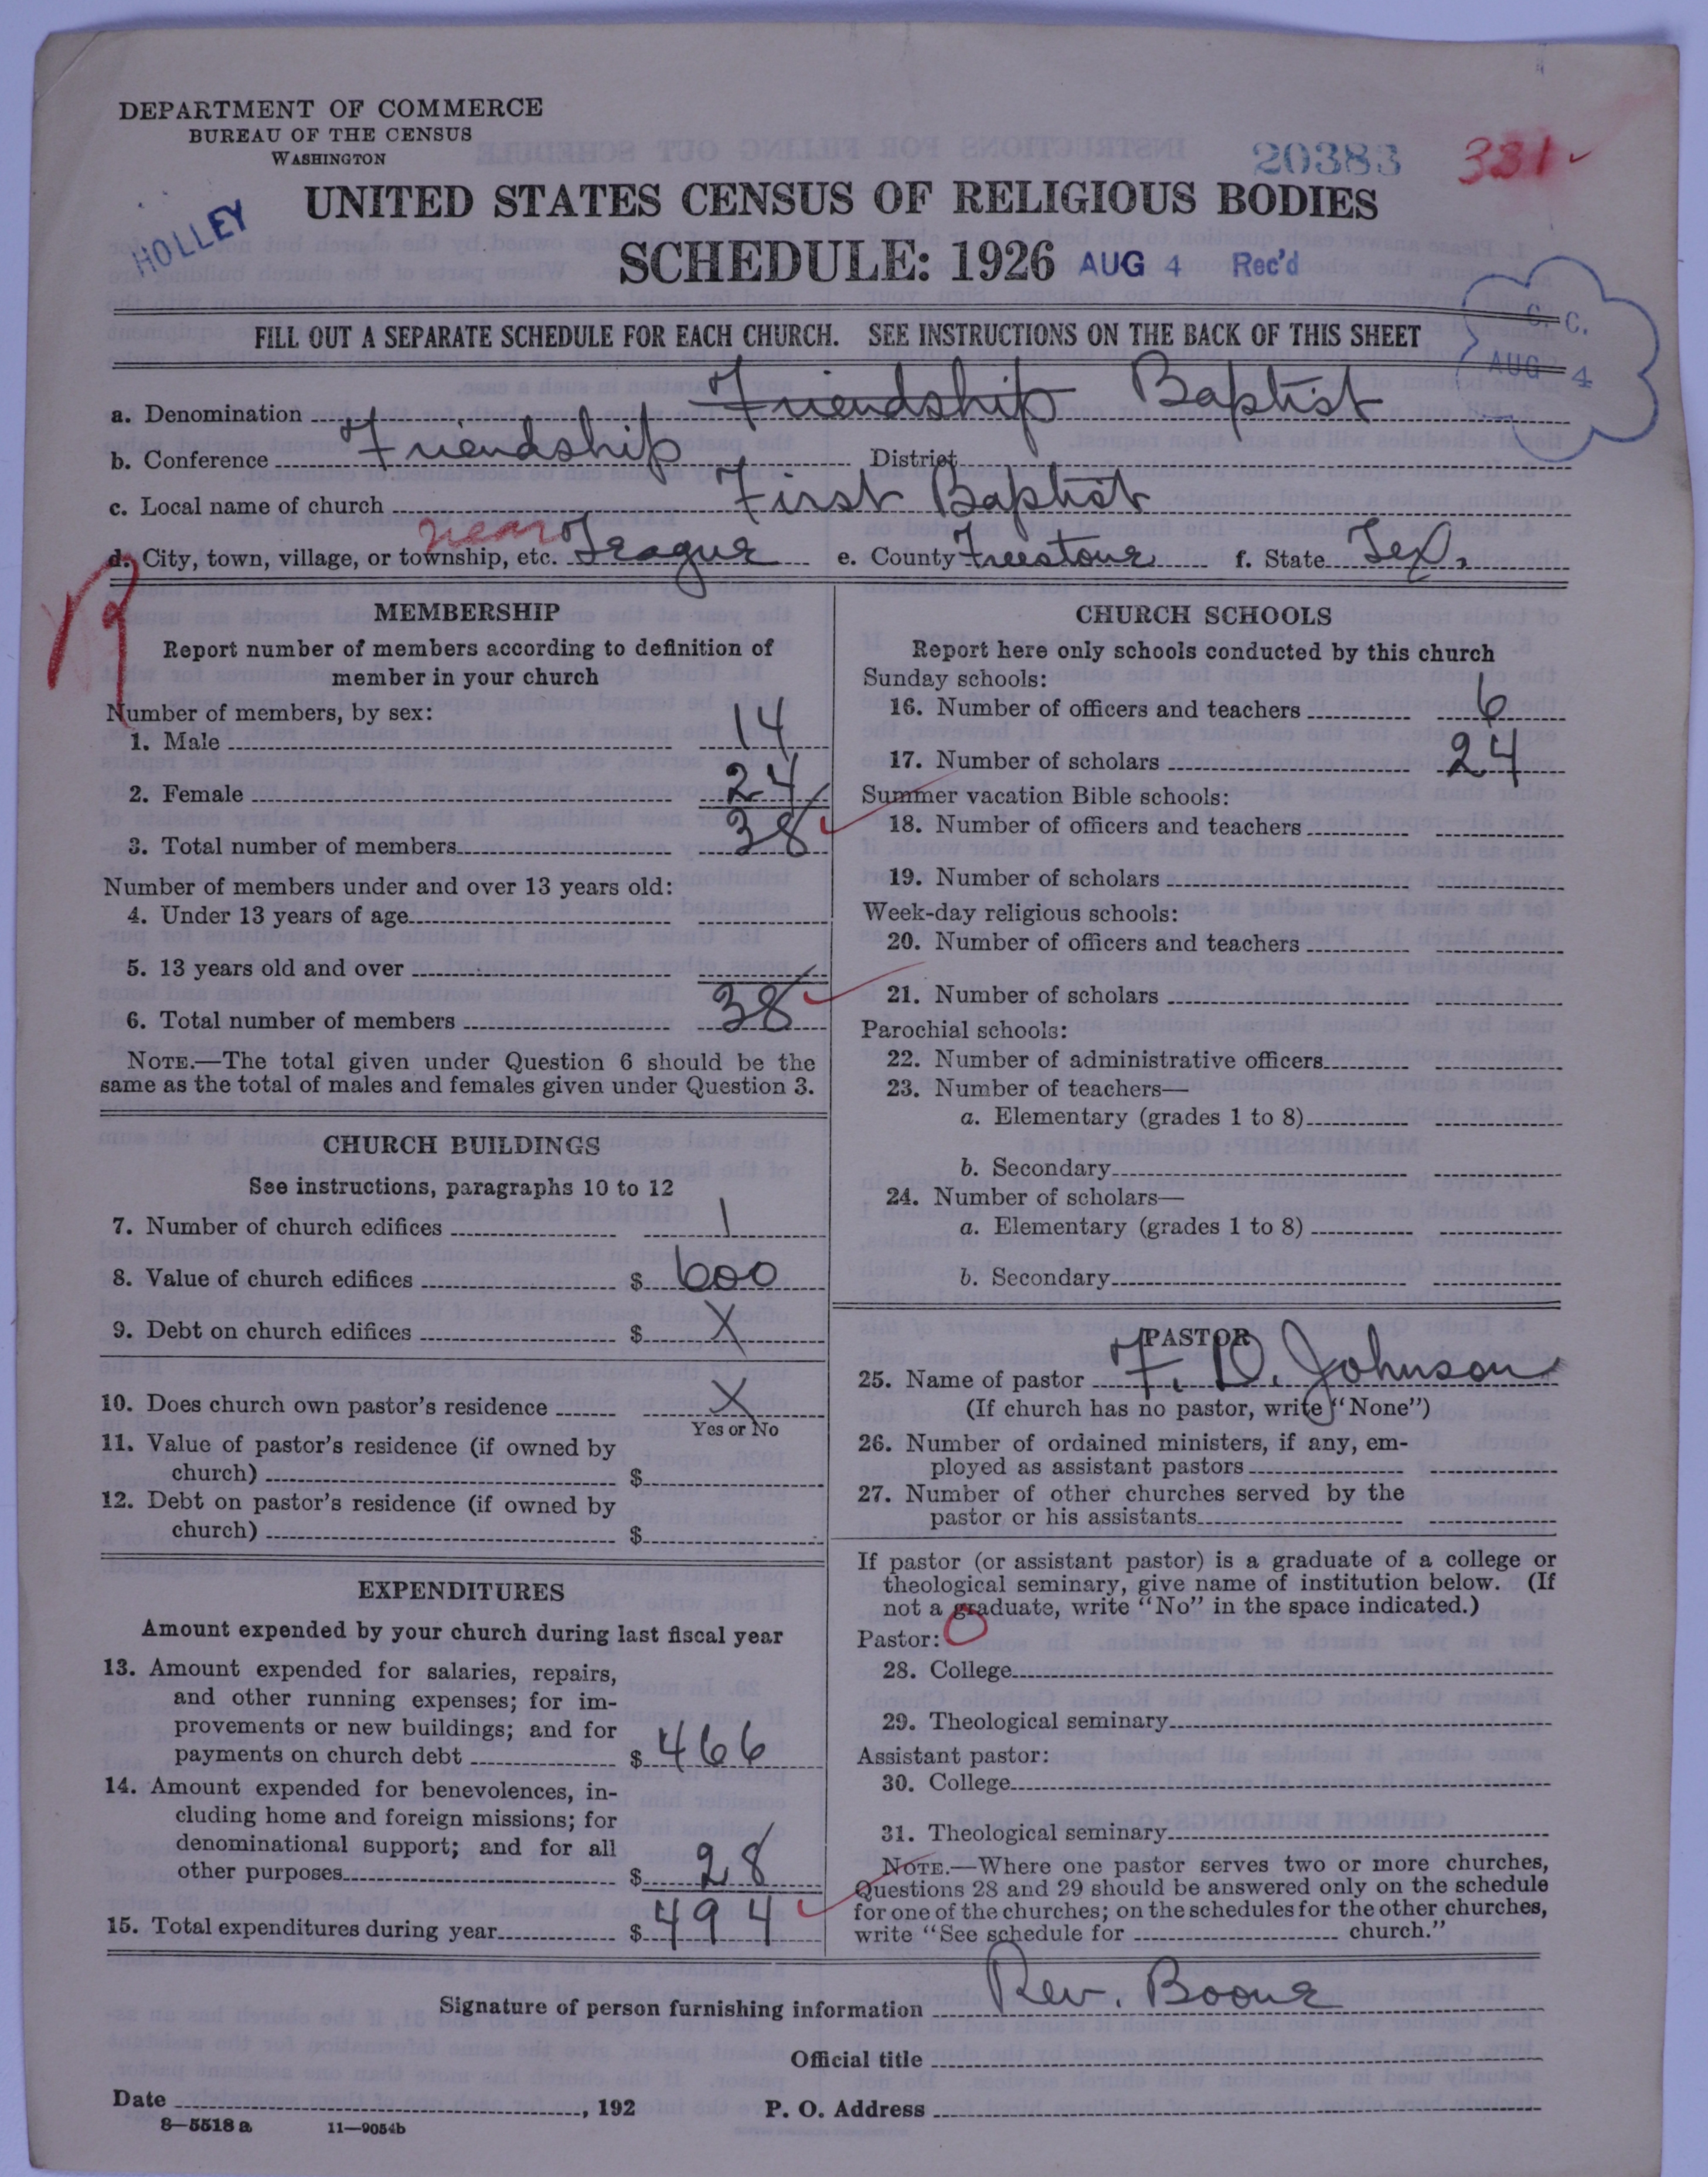 DEPARTMENT OF COMMERCE
BUREAU OF THE CENSUS
WASHINGTON
20383 331
HOLLEY
UNITED STATES CENSUS OF RELIGIOUS BODIES
SCHEDULE: 1926 AUG 4 Rec'd
C. C.
AUG 4
FILL OUT A SEPARATE SCHEDULE FOR EACH CHURCH. SEE INSTRUCTIONS ON THE BACK OF THIS SHEET
a. Denomination Friendship Baptist
b. Conference Friendship District
c. Local name of church First Baptist
d. City, town, village, or township, etc. near Teague e. County Freestone f. State Tex.
MEMBERSHIP
Report number of members according to definition of
member in your church
Number of members, by sex:
1. Male 14
2. Female 24
3. Total number of members 38
Number of members under and over 13 years old:
4. Under 13 years of age
5. 13 years old and over
6. Total number of members 38
NOTE.—The total given under Question 6 should be the
same as the total of males and females given under Question 3.
CHURCH BUILDINGS
See instructions, paragraphs 10 to 12
7. Number of church edifices 1
8. Value of church edifices $ 600
9. Debt on church edifices $ X
10. Does church own pastor's residence X
Yes or No
11. Value of pastor's residence (if owned by
church) $
12. Debt on pastor's residence (if owned by
church) $
EXPENDITURES
Amount expended by your church during last fiscal year
13. Amount expended for salaries, repairs,
and other running expenses; for im-
provements or new buildings; and for
payments on church debt $ 466
14. Amount expended for benevolences, in-
cluding home and foreign missions; for
denominational support; and for all
other purposes $ 28
15. Total expenditures during year $ 494
CHURCH SCHOOLS
Report here only schools conducted by this church
Sunday schools:
16. Number of officers and teachers 6
17. Number of scholars 24
Summer vacation Bible schools:
18. Number of officers and teachers
19. Number of scholars
Week-day religious schools:
20. Number of officers and teachers
21. Number of scholars
Parochial schools:
22. Number of administrative officers
23. Number of teachers—
a. Elementary (grades 1 to 8)
b. Secondary
24. Number of scholars—
a. Elementary (grades 1 to 8)
b. Secondary
PASTOR
25. Name of pastor F. D. Johnson
(If church has no pastor, write "None")
26. Number of ordained ministers, if any, em-
ployed as assistant pastors
27. Number of other churches served by the
pastor or his assistants
If pastor (or assistant pastor) is a graduate of a college or
theological seminary, give name of institution below. (If
not a graduate, write "No" in the space indicated.)
Pastor:
28. College
29. Theological seminary
Assistant pastor:
30. College
31. Theological seminary
NOTE.—Where one pastor serves two or more churches,
Questions 28 and 29 should be answered only on the schedule
for one of the churches; on the schedules for the other churches,
write "See schedule for church."
Signature of person furnishing information Rev. Boone
Official title
Date , 192 P. O. Address
8—5518 a 11—9054b